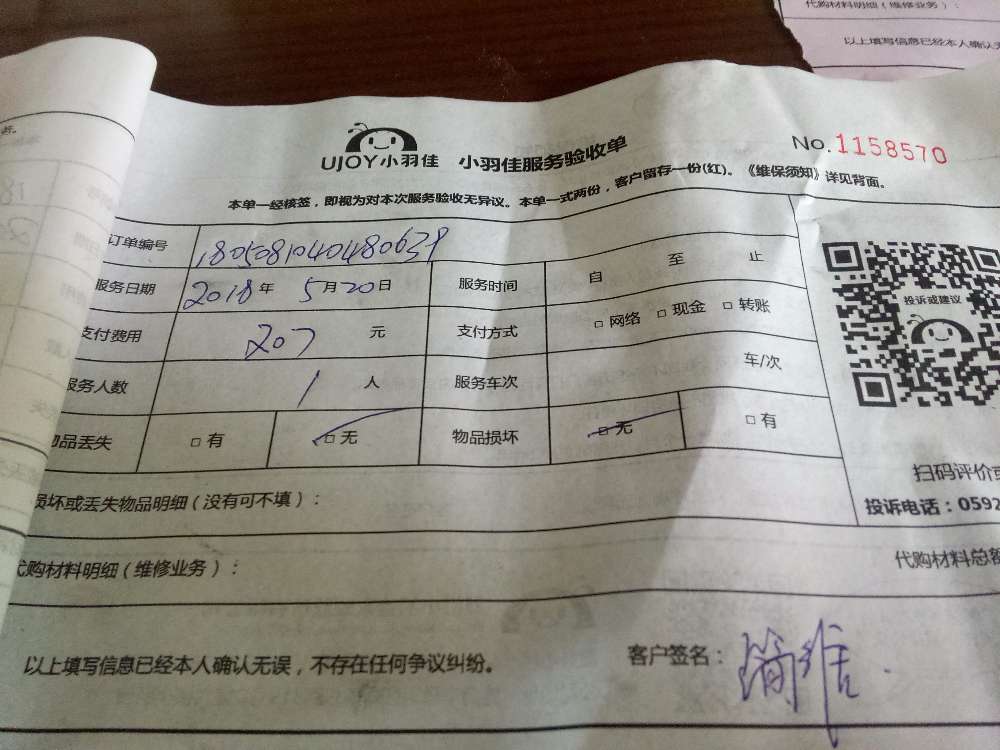 代购材料明细(维修业务):
以上填写信息已经本人确认无
UJOY小羽佳 小羽佳服务验收单
No.1158570
本单一经核签,即视为对本次服务验收无异议。本单一式两份,客户留存一份(红)。《维保须知》详见背面。
订单编号 1805081040480639
服务日期 2018年 5月20日 服务时间 自 至 止
支付费用 207 元 支付方式 □网络 □现金 □转账
服务人数 1 人 服务车次 车/次
物品丢失 □有 □无 物品损坏 □无 □有
投诉或建议
扫码评价或
投诉电话:0592
损坏或丢失物品明细(没有可不填):
代购材料明细(维修业务): 代购材料总额
以上填写信息已经本人确认无误,不存在任何争议纠纷。
客户签名: